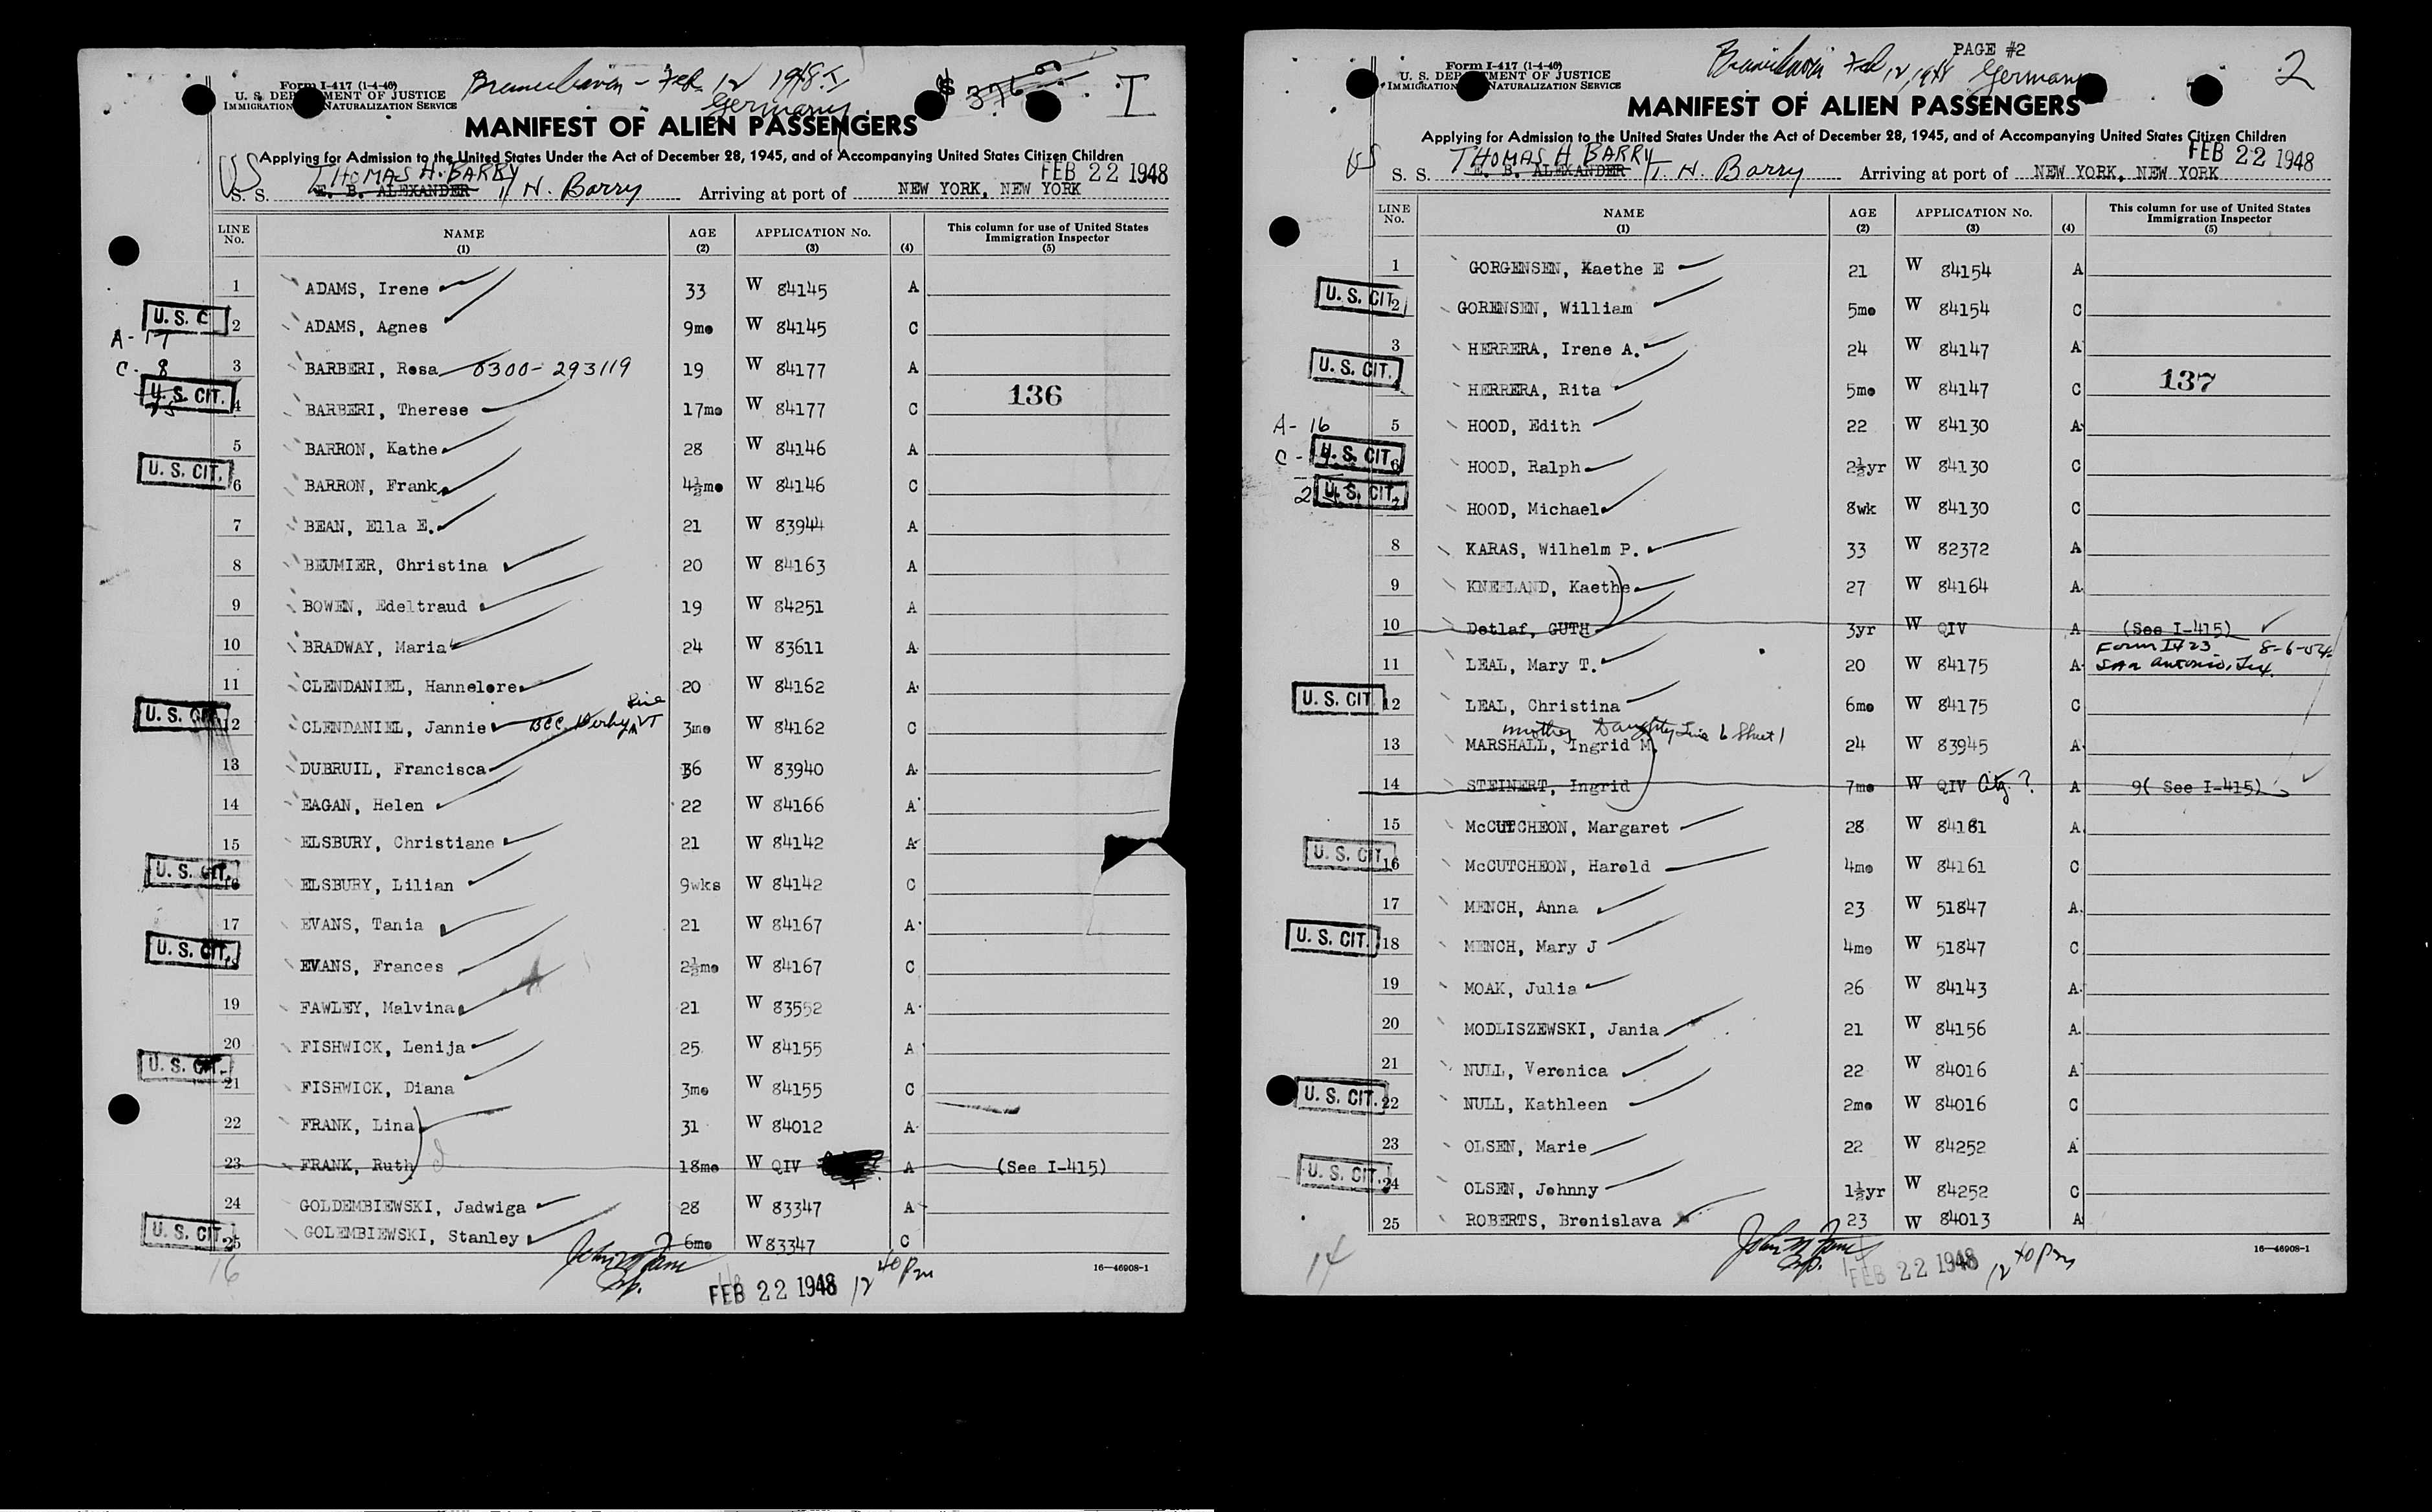 Form I-417 (1-4-46)
U. S. DEP MENT OF JUSTICE
IMMIGRATION NATURALIZATION SERVICE
Bremerhaven - Feb 12 1948
Germany
$ 376
I
MANIFEST OF ALIEN PASSENGERS
Applying for Admission to the United States Under the Act of December 28, 1945, and of Accompanying United States Citizen Children
US THOMAS H. BARRY
FEB 22 1948
S. S. E. B. ALEXANDER T. H. Barry Arriving at port of NEW YORK, NEW YORK
LINE No. NAME (1) AGE (2) APPLICATION No. (3) (4) This column for use of United States Immigration Inspector (5)
1 ADAMS, Irene 33 W 84145 A
U. S. C 2 ADAMS, Agnes 9mo W 84145 C
A- 17
C- 8
3 BARBERI, Rosa 0300- 293119 19 W 84177 A
136
U. S. CIT. 4 BARBERI, Therese 17mo W 84177 C
5 BARRON, Kathe 28 W 84146 A
U. S. CIT. 6 BARRON, Frank 4½mo W 84146 C
7 BEAN, Ella E. 21 W 83944 A
8 BEUMIER, Christina 20 W 84163 A
9 BOWEN, Edeltraud 19 W 84251 A
10 BRADWAY, Maria 24 W 83611 A
11 CLENDANIEL, Hannelore 20 W 84162 A
U. S. CIT. 12 CLENDANIEL, Jannie BCC Derby Line VT 3mo W 84162 C
13 DUBRUIL, Francisca 36 W 83940 A
14 EAGAN, Helen 22 W 84166 A
15 ELSBURY, Christiane 21 W 84142 A
U. S. CIT. 16 ELSBURY, Lilian 9wks W 84142 C
17 EVANS, Tania 21 W 84167 A
U. S. CIT. EVANS, Frances 2½mo W 84167 C
19 FAWLEY, Malvina 21 W 83552 A
20 FISHWICK, Lenija 25 W 84155 A
U. S. CIT. 21 FISHWICK, Diana 3mo W 84155 C
22 FRANK, Lina 31 W 84012 A
23 FRANK, Ruth 18mo W QIV A (See I-415)
24 GOLDEMBIEWSKI, Jadwiga 28 W 83347 A
U. S. CIT. 25 GOLEMBIEWSKI, Stanley 6mo W 83347 C
16
FEB 22 1948 12 40 Pm
16—46908-1
PAGE #2
Form I-417 (1-4-46)
U. S. DEP TMENT OF JUSTICE
IMMIGRATION NATURALIZATION SERVICE
Bremerhaven Feb 12, 1948 Germany
2
MANIFEST OF ALIEN PASSENGERS
Applying for Admission to the United States Under the Act of December 28, 1945, and of Accompanying United States Citizen Children
US THOMAS H BARRY
FEB 22 1948
S. S. E. B. ALEXANDER T. H. Barry Arriving at port of NEW YORK, NEW YORK
LINE No. NAME (1) AGE (2) APPLICATION No. (3) (4) This column for use of United States Immigration Inspector (5)
1 GORGENSEN, Kaethe E 21 W 84154 A
U. S. CIT. 2 GORENSEN, William 5mo W 84154 C
3 HERRERA, Irene A. 24 W 84147 A
137
U. S. CIT. HERRERA, Rita 5mo W 84147 C
A- 16
5 HOOD, Edith 22 W 84130 A
C -
U. S. CIT. 6 HOOD, Ralph 2½yr W 84130 C
U. S. CIT. HOOD, Michael 8wk W 84130 C
8 KARAS, Wilhelm P. 33 W 82372 A
9 KNEELAND, Kaethe 27 W 84164 A
10 Detlaf, GUTH 3yr W QIV A (See I-415)
Form I423 8-6-54
11 LEAL, Mary T. 20 W 84175 A San Antonio, Tex.
U. S. CIT 12 LEAL, Christina 6mo W 84175 C
mother Daughter Line 6 Sheet 1
13 MARSHALL, Ingrid M. 24 W 83945 A
14 STEINERT, Ingrid 7mo W QIV Citz ? A 9( See I-415)
15 McCUTCHEON, Margaret 28 W 84161 A
U. S. CIT. 16 McCUTCHEON, Harold 4mo W 84161 C
17 MENCH, Anna 23 W 51847 A
U. S. CIT. 18 MENCH, Mary J 4mo W 51847 C
19 MOAK, Julia 26 W 84143 A
20 MODLISZEWSKI, Jania 21 W 84156 A
21 NULL, Veronica 22 W 84016 A
U. S. CIT. 22 NULL, Kathleen 2mo W 84016 C
23 OLSEN, Marie 22 W 84252 A
U. S. CIT. 24 OLSEN, Johnny 1½yr W 84252 C
25 ROBERTS, Bronislava 23 W 84013 A
14
FEB 22 1948 12 40 Pm
16—46908-1